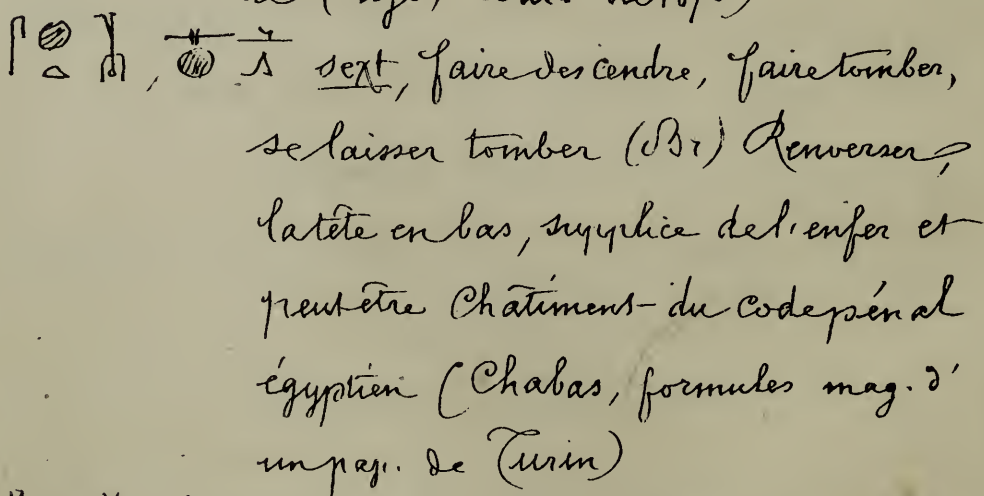 𓋴𓐍𓏏, 𓊃𓐍𓂻 sext, faire descendre, faire tomber,
se laisser tomber (Br) Renverser,
la tête en bas, supplice de l'enfer et
peut être Châtiment du code pénal
égyptien (Chabas, formules mag. d'
un pap. de Turin)